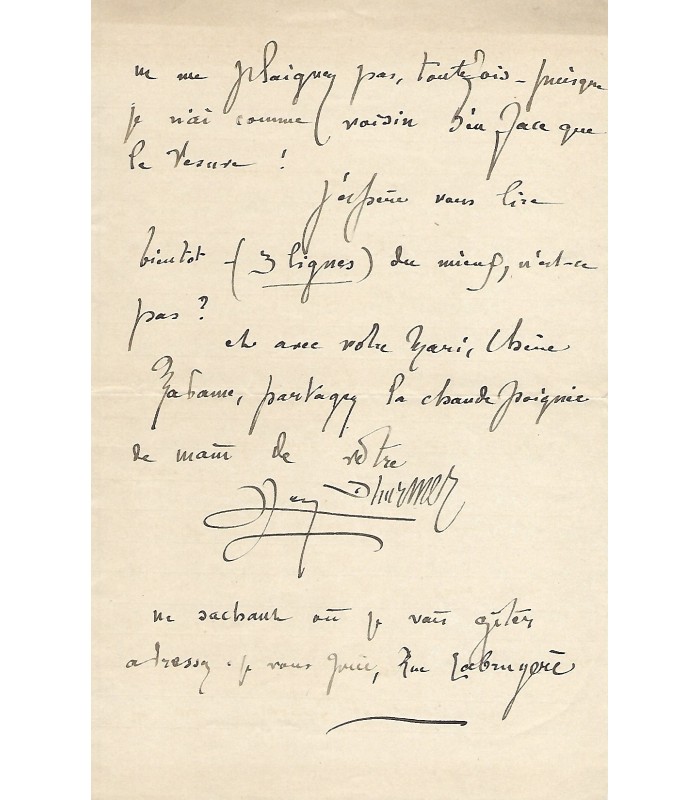 ne me plaignez pas, toutefois - puisque
je n'ai comme voisin d'en face que
le Vesuve !
j'espère vous lire
bientot - (3 lignes) du mieux, n'est-ce
pas ?
et avec votre Mari, Chère
Madame, partagez la chaude poignée
de main de votre
Lévy Dhurmer
ne sachant où je vais gîter
adressez - je vous prie, Rue Labruyère